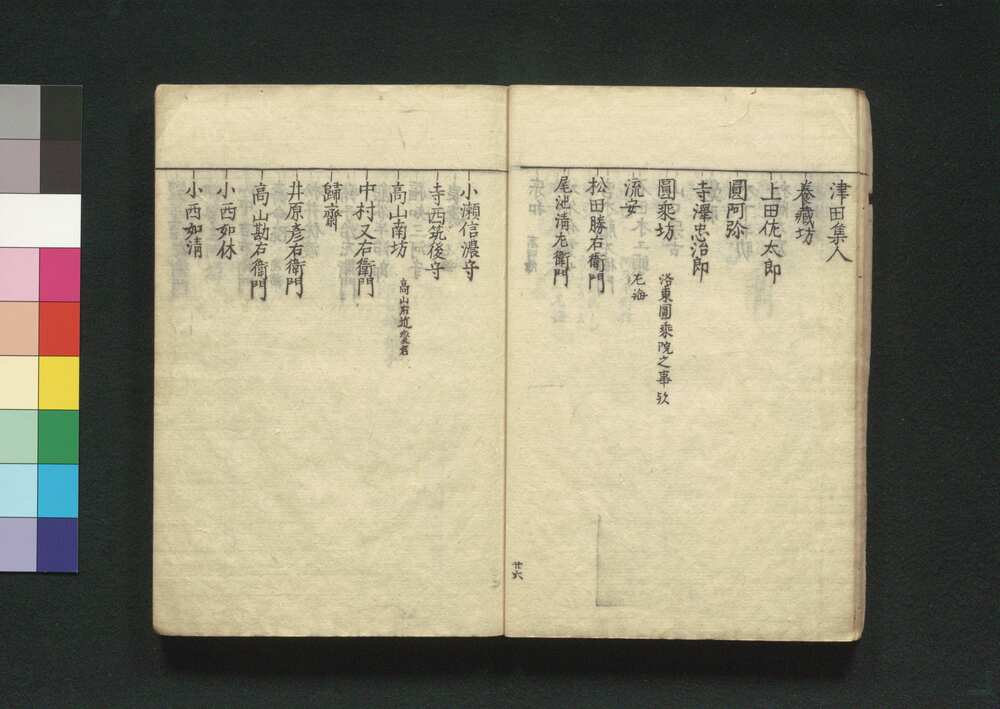 津田集人
春藏坊
上田佐太郎
圓阿弥
寺澤忠治郎
圓乘坊 洛東圓乘院之事欤
流安 左海
松田勝右衛門
尾池清左衛門
廿六
小瀬信濃守
寺西筑後守
高山南坊
中村又右衛門
歸齋
井原彦右衛門
高山勘右衛門
小西如休
小西如清